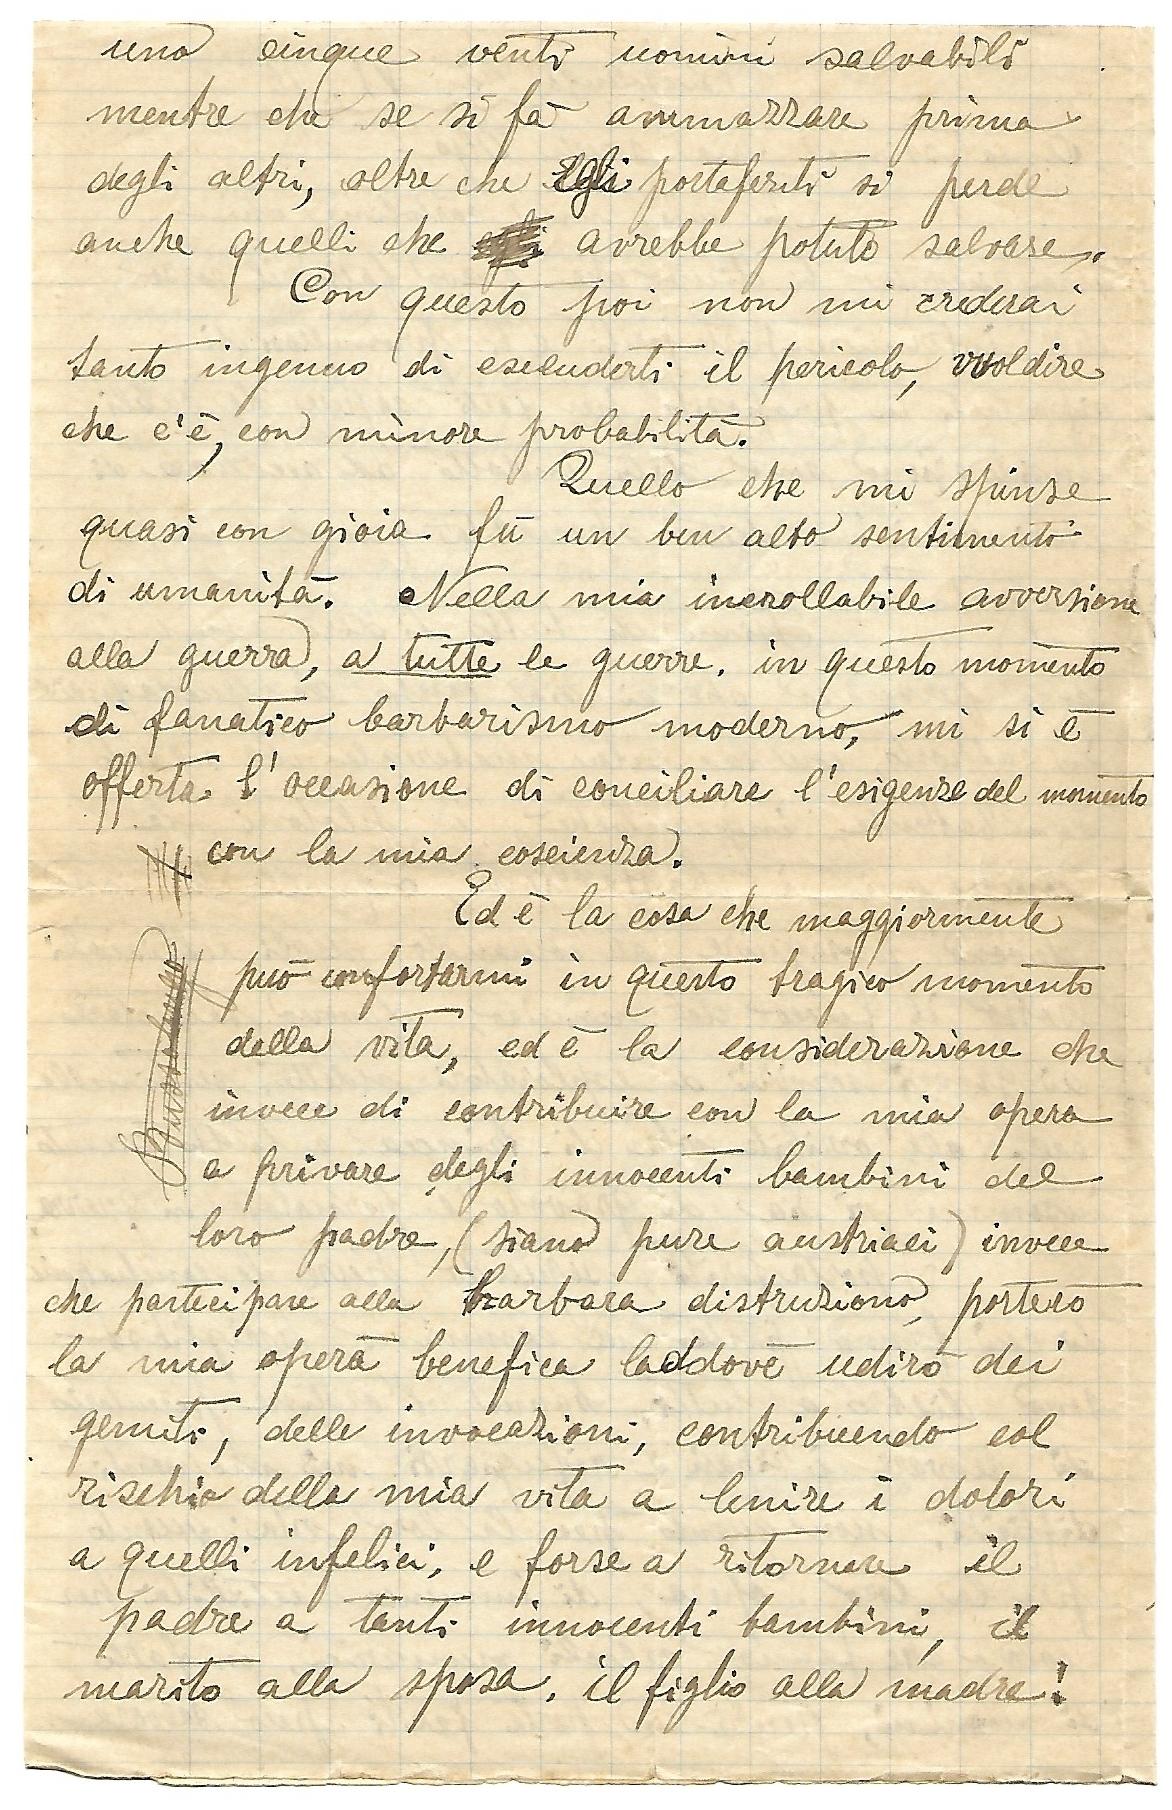 uno cinque venti uomini salvabili
mentre che se si fà ammazzare prima
degli altri, oltre che Egli portaferiti si perde
anche quelli che avrebbe potuto salvare.
Con questo poi non mi crederai
tanto ingenuo di escluderti il pericolo, vuoldire
che c'è, con minore probabilità.
Quello che mi spinse
quasi con gioia fù un ben alto sentimento
di umanità. Nella mia incrollabile avversione
alla guerra, a tutte le guerre. in questo momento
di fanatico barbarismo moderno, mi si è
offerta l'occasione di conciliare l'esigenze del momento
con la mia coscienza.
Ed è la cosa che maggiormente
può confortarmi in questo tragico momento
della vita, ed è la considerazione che
invece di contribuire con la mia opera
a privare degli innocenti bambini del
loro padre, (siano pure austriaci) invece
che partecipare alla barbara distruzione, porterò
la mia operà benefica laddovè udirò dei
gemiti, delle invocazioni, contribuendo col
rischio della mia vita a lenire i dolori
a quelli infelici, e forse a ritornare il
padre a tanti innocenti bambini, il
marito alla sposa. il figlio alla madre!